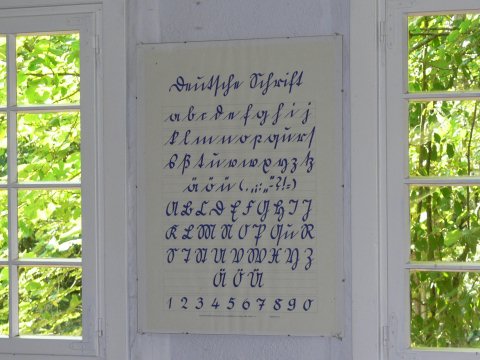 Deutsche Schrift
a b c d e f g h i j
k l m n o p q u r ſ
s ß t u v w x y z tz
ä ö ü ( . , ; : „ “ ? ! = )
A B C D E F G H I J
K L M N O P Qu R
S T U V W X Y Z
Ä Ö Ü
1 2 3 4 5 6 7 8 9 0